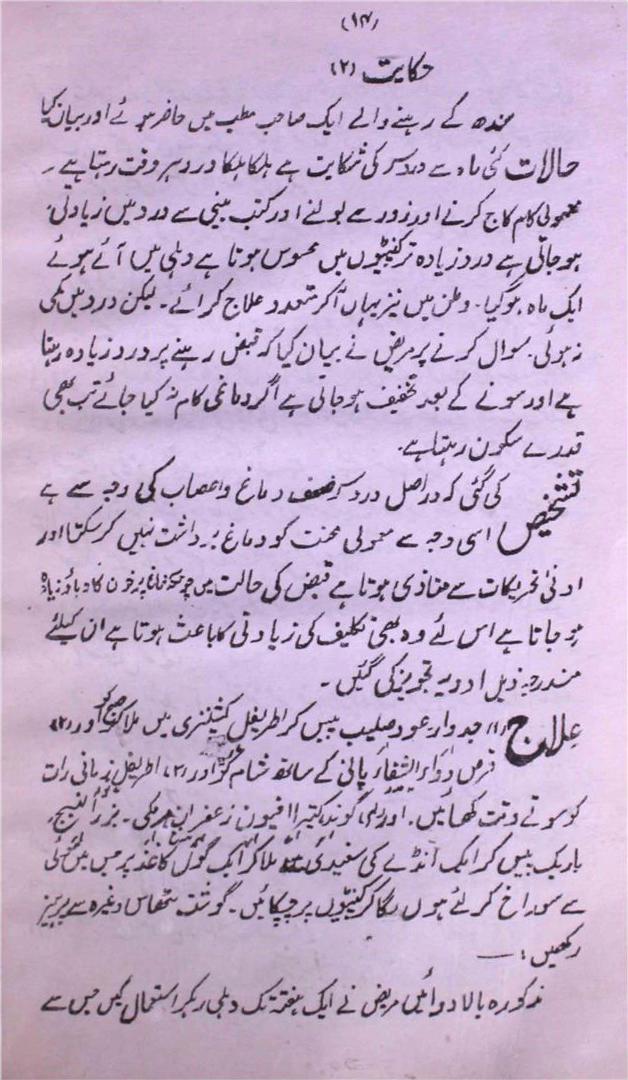 (۱۴)
حکایت (۲)
سندھ کے رہنے والے ایک صاحب مطب میں حاضر ہوئے اور بیان کیا
حالات کئی ماہ سے درد سر کی شکایت ہے ہلکا ہلکا درد ہر وقت رہتا ہے ۔
معمولی کام کاج کرنے اور زور سے بولنے اور کتب بینی سے درد میں زیادتی
ہو جاتی ہے درد زیادہ تر کنپٹیوں میں محسوس ہوتا ہے دہلی میں آئے ہوئے
ایک ماہ ہو گیا۔ وطن میں نیز یہاں آکر متعدد علاج کرائے۔ لیکن درد میں کمی
نہ ہوئی۔ سوال کرنے پر مریض نے بیان کیا کہ قبض رہنے پر درد زیادہ رہتا
ہے اور سونے کے بعد تخفیف ہو جاتی ہے اگر دماغی کام نہ کیا جائے تب بھی
قدرے سکون رہتا ہے۔
تشخیص کی گئی کہ دراصل درد سر ضعف دماغ و اعصاب کی وجہ سے ہے
اسی وجہ سے معمولی محنت کو دماغ برداشت نہیں کر سکتا اور
ادنی تحریکات سے متاذی ہوتا ہے قبض کی حالت میں چونکہ دماغ پر خون کا دباؤ زیادہ
ہو جاتا ہے اس لئے وہ بھی تکلیف کی زیادتی کا باعث ہوتا ہے ان کیلئے
مندرجہ ذیل ادویہ تجویز کی گئیں ۔
علاج (۱) جدوار عود صلیب پیس کر اطریفل کشنیزی میں ملا کر صبح کو اور (۲)
قرص دواء الشفاء پانی کے ساتھ شام کو اور (۳) اطریفل زمانی رات
کو سوتے وقت کھائیں۔ اور گوند کتیرا افیون زعفران مرمکی۔ بزر البنج۔
باریک پیس کر ایک انڈے کی سفیدی میں ملا کر ایک گول کاغذ پر جس میں سوئی
سے سوراخ کر لئے ہوں لگا کر کنپٹیوں پر چپکائیں۔ گوشت مٹھاس وغیرہ سے پرہیز
رکھیں :—
مذکورہ بالا دوائیں مریض نے ایک ہفتہ تک دہلی رہ کر استعمال کیں جس سے